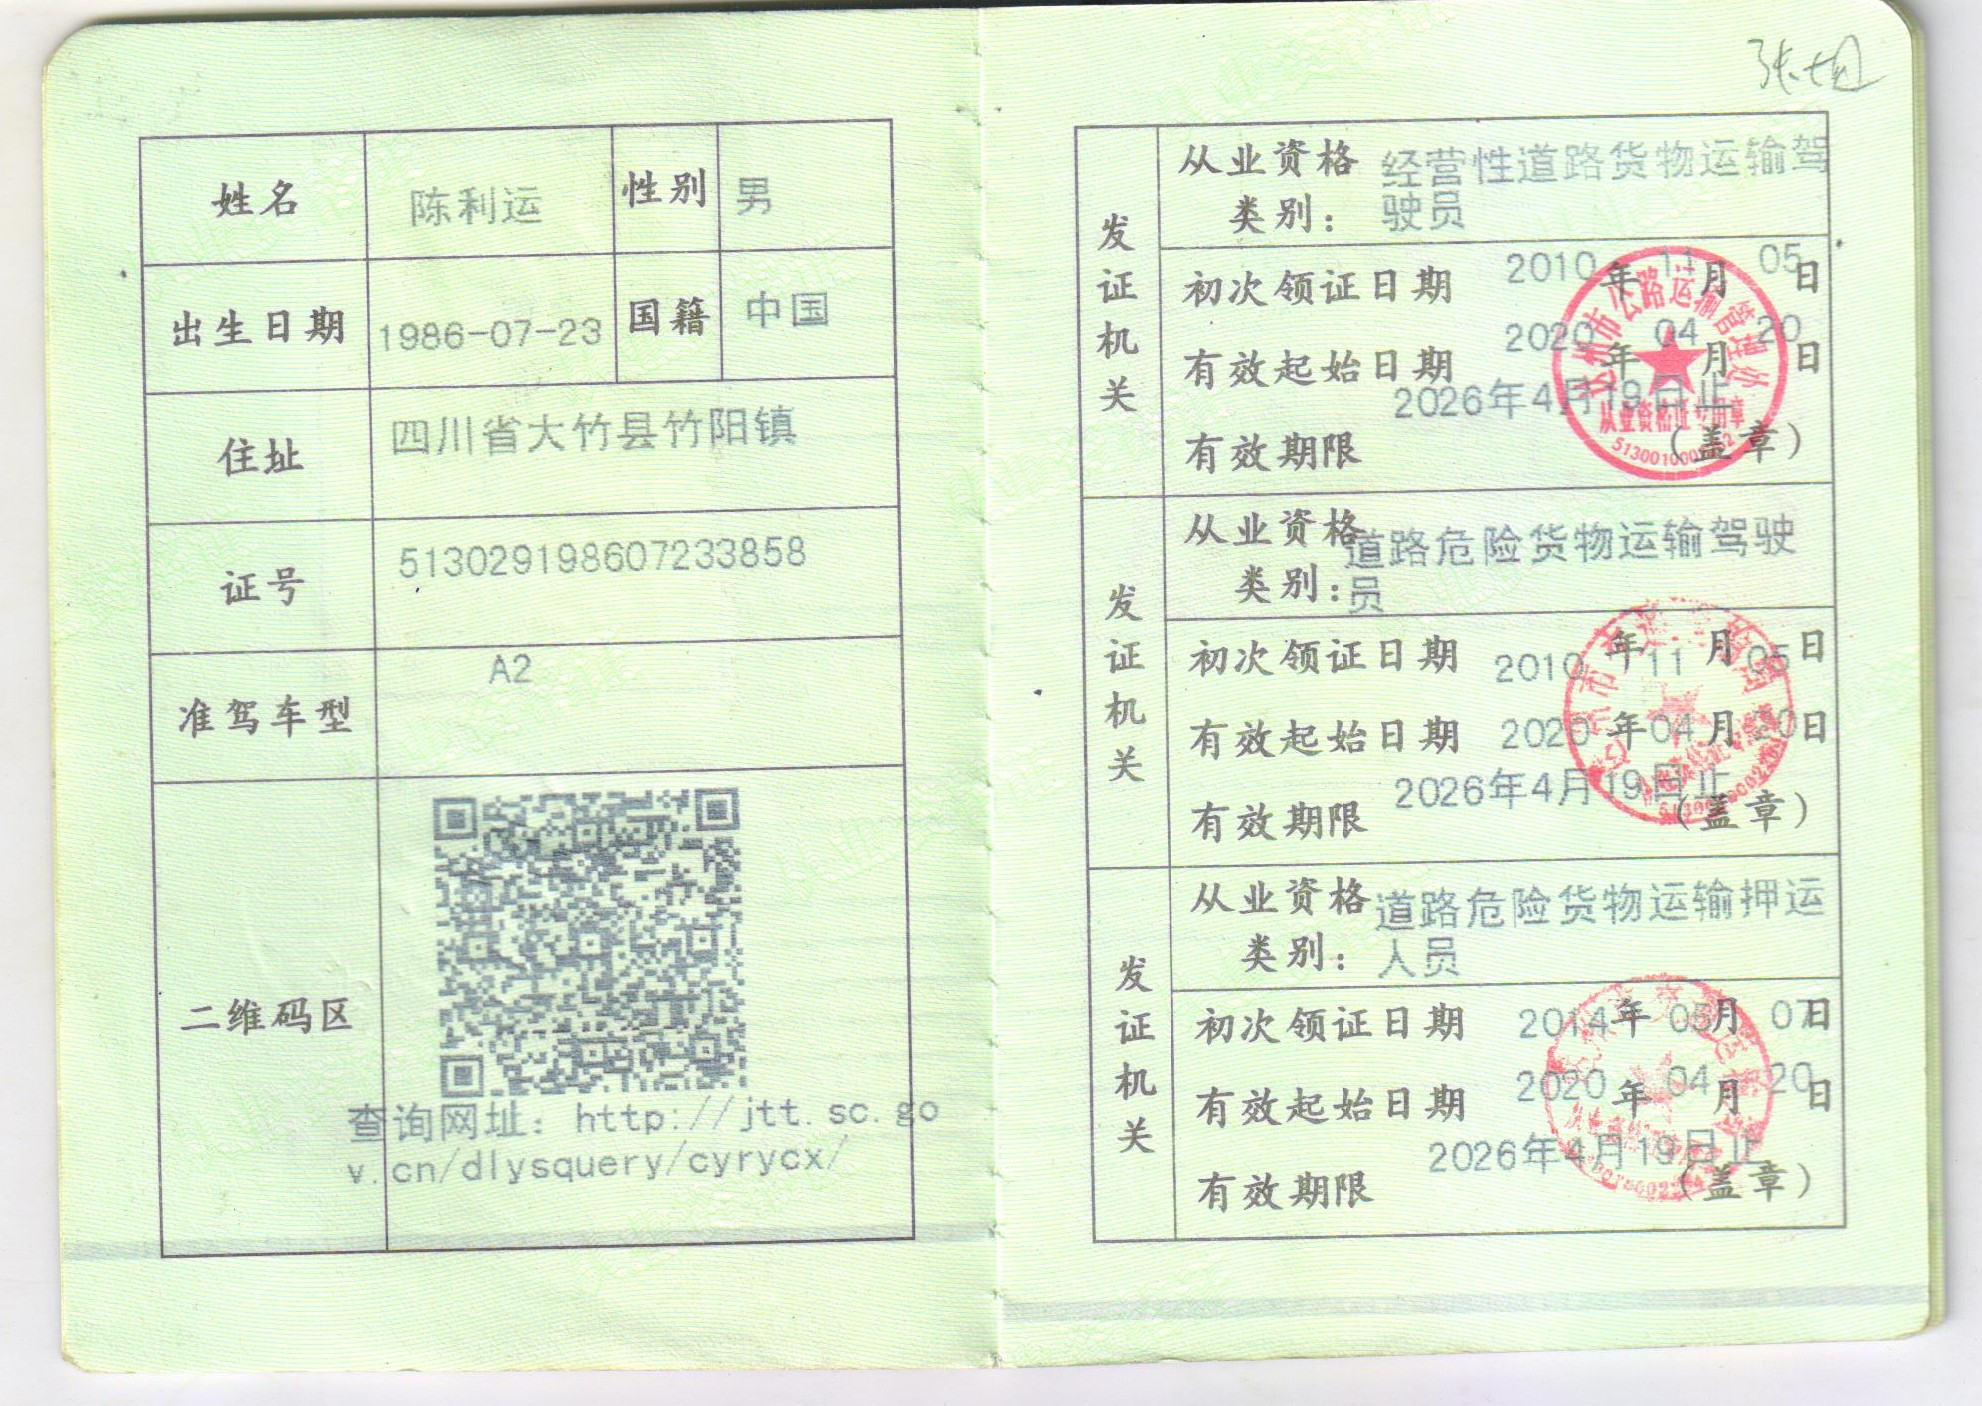 姓名 陈利运 性别 男
出生日期 1986-07-23 国籍 中国
住址 四川省大竹县竹阳镇
证号 513029198607233858
准驾车型 A2
二维码区
查询网址：http://jtt.sc.go
v.cn/dlysquery/cyrycx/
发证机关
从业资格 经营性道路货物运输驾
类别： 驶员
初次领证日期 2010年11月05日
有效起始日期 2020年04月20日
2026年4月19日止
有效期限 （盖章）
达州市公路运输管理处
从业资格证专用章
发证机关
从业资格 道路危险货物运输驾驶
类别： 员
初次领证日期 2010年11月05日
有效起始日期 2020年04月20日
2026年4月19日止
有效期限 （盖章）
发证机关
从业资格 道路危险货物运输押运
类别： 人员
初次领证日期 2014年05月07日
有效起始日期 2020年04月20日
2026年4月19日止
有效期限 （盖章）